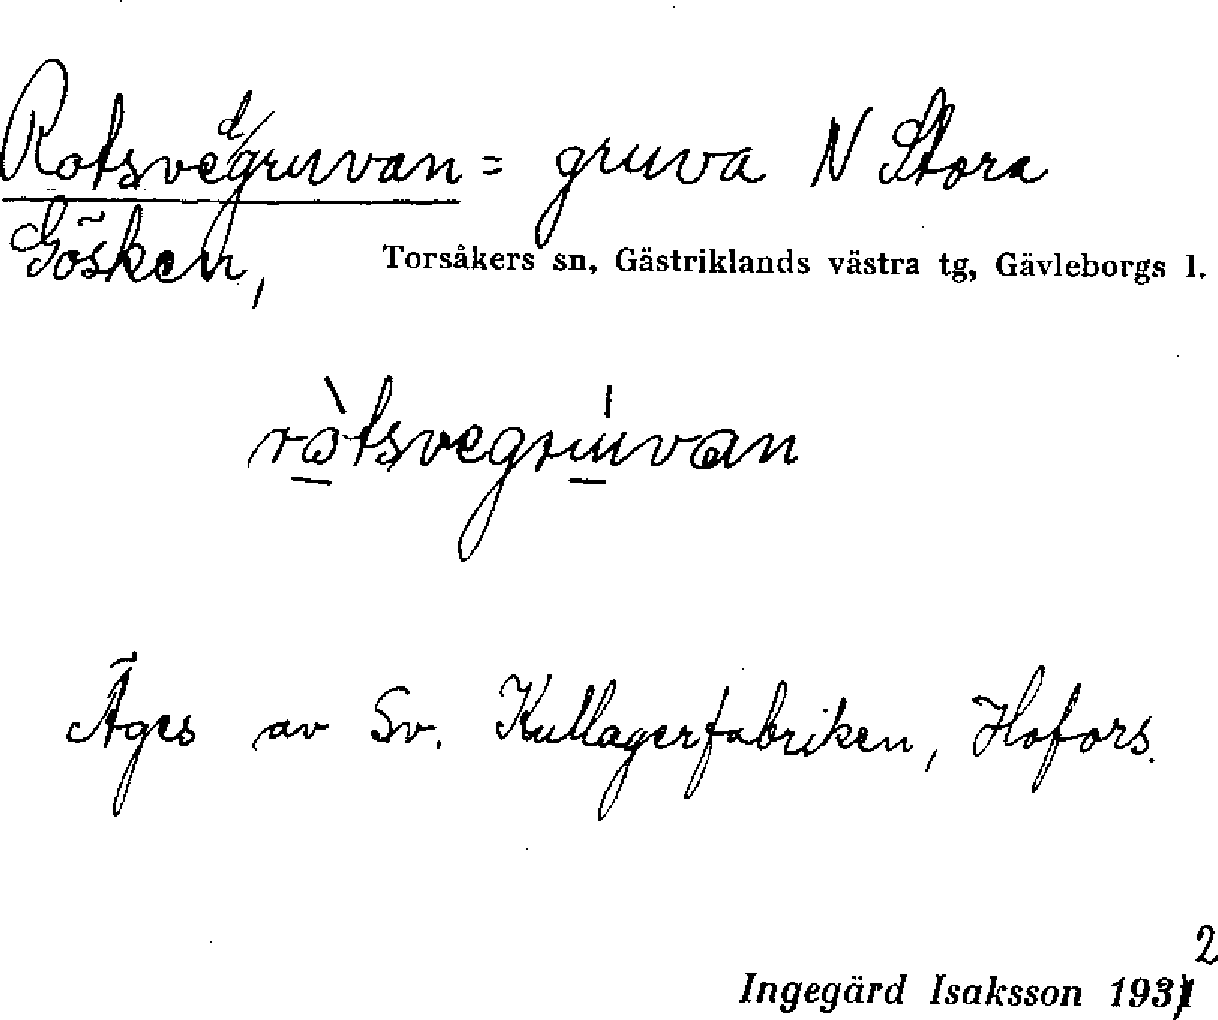 Rotsvedgruvan = gruva N Stora
Gösken,
Torsåkers sn, Gästriklands västra tg, Gävleborgs l.
ròtsvegrúvan
Äges av Sv. Kullagerfabriken, Hofors.
2
Ingegärd Isaksson 1931